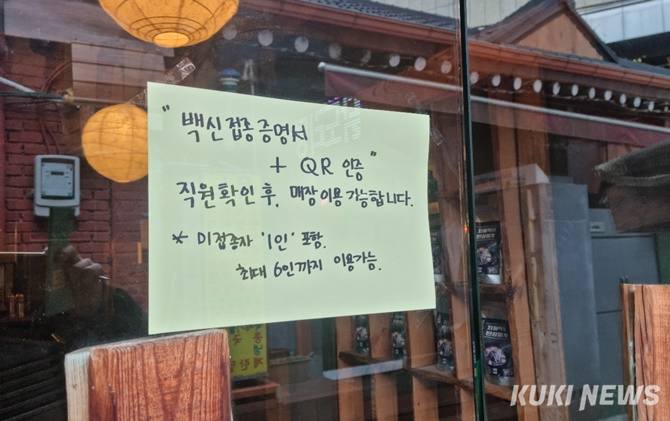 "백신접종증명서
+ QR 인증"
직원확인 후, 매장이용 가능합니다.
* 미접종자 '1인' 포함.
최대 6인까지 이용가능.
KUKI NEWS